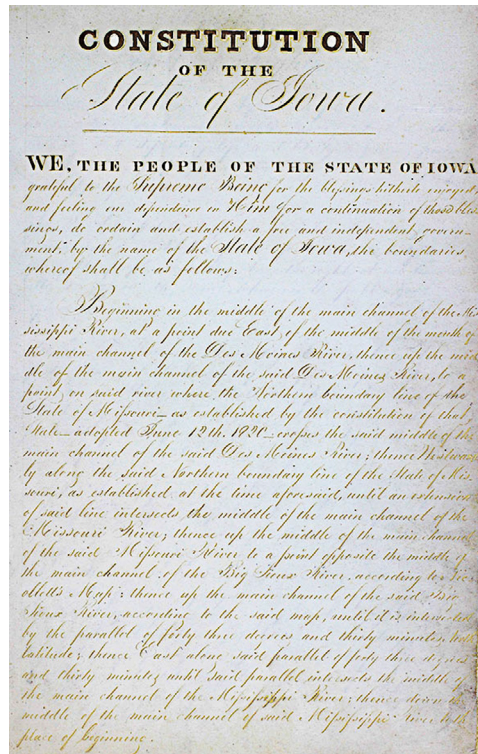 CONSTITUTION
OF THE
State of Iowa.
WE, THE PEOPLE OF THE STATE OF IOWA
grateful to the Supreme Being for the blessings hitherto enjoyed,
and feeling our dependence on Him for a continuation of those bles-
sings, do ordain and establish a free and independent govern-
ment, by the name of the State of Iowa, the boundaries
whereof shall be as follows:
Beginning in the middle of the main channel of the Mis-
sissippi River, at a point due East, of the middle of the mouth of
the main channel of the Des Moines River, thence up the mid-
dle of the main channel of the said Des Moines River, to a
point, on said river where, the Northern boundary line of the
State of Missouri— as established by the constitution of that
State— adopted June 12th. 1820— crosses the said middle of the
main channel of the said Des Moines River; thence Westward-
ly along the said Northern boundary line of the State of Mis-
souri, as established at the time aforesaid, until an extension
of said line intersects the middle of the main channel of the
Missouri River; thence up the middle of the main channel
of the said Missouri River to a point opposite the middle of
the main channel of the Big Sioux River, according to Nic-
ollett's Map; thence up the main channel of the said Big
Sioux River, according to the said map, until it is intersected
by the parallel of forty three degrees and thirty minutes North
latitude; thence East along said parallel of forty three degrees
and thirty minutes until said parallel intersects the middle of
the main channel of the Mississippi River; thence down the
middle of the main channel of said Mississippi river to the
place of beginning.